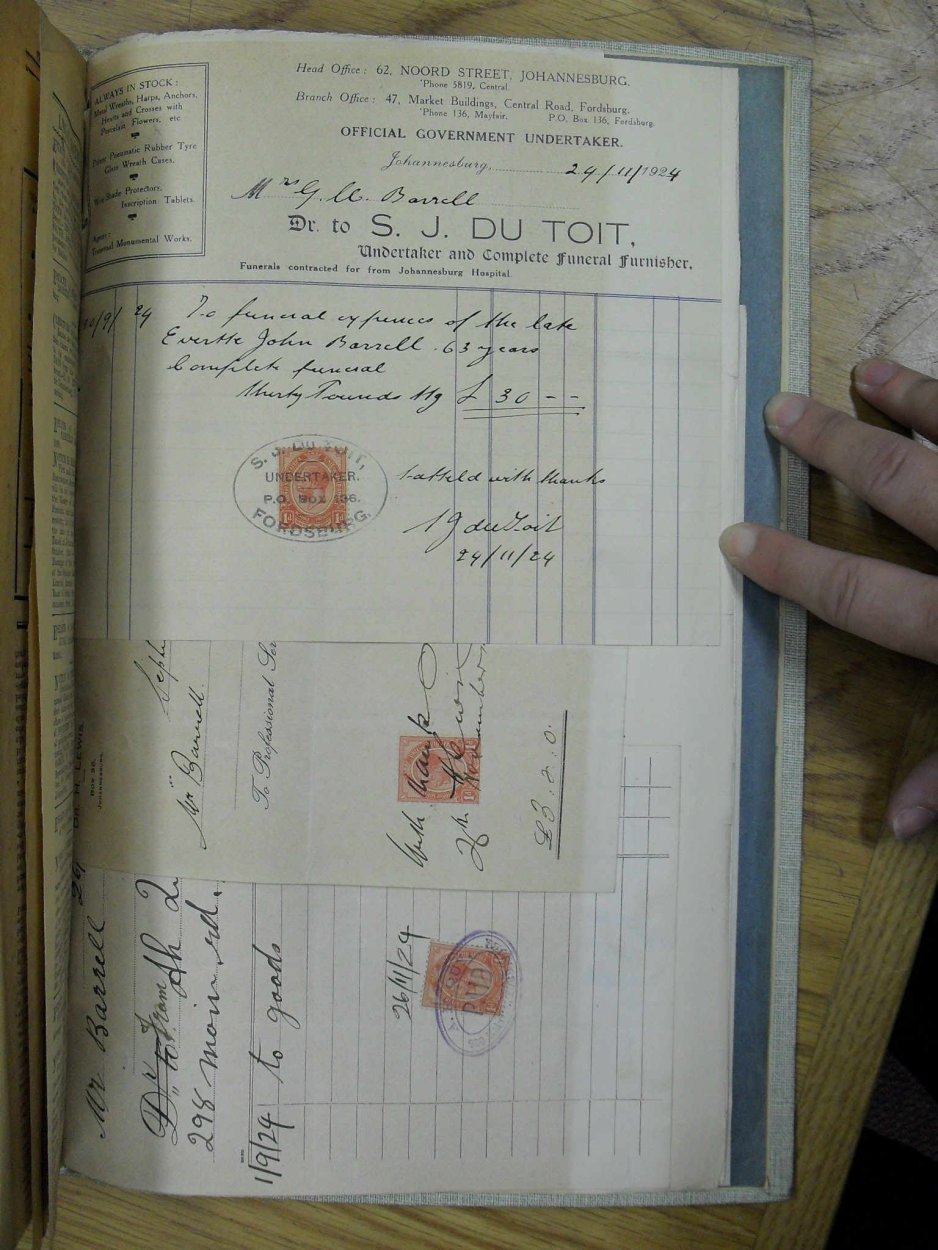 ALWAYS IN STOCK:
Metal Wreaths, Harps, Anchors,
Hearts and Crosses with
Porcelain Flowers, etc
Pneumatic Rubber Tyre
Glass Wreath Cases.
Shade Protectors,
Inscription Tablets.
Agent:
Universal Monumental Works.
Head Office: 62, NOORD STREET, JOHANNESBURG.
'Phone 5819, Central.
Branch Office: 47, Market Buildings, Central Road, Fordsburg.
'Phone 136, Mayfair. P.O. Box 136, Fordsburg.
OFFICIAL GOVERNMENT UNDERTAKER.
Johannesburg, 24/11/1924
Mrs G. Barrell
Dr. to S. J. DU TOIT,
Undertaker and Complete Funeral Furnisher.
Funerals contracted for from Johannesburg Hospital.
/9/24 To funeral expenses of the late
Evertte John Barrell. 63 years
Complete funeral
thirty Pounds Stg £ 30 - -
S. J. DU TOIT,
UNDERTAKER.
P.O. BOX 136.
FORDSBURG.
1d 1d
Settled with thanks
S J du Toit
24/11/24
DR. H. LEWIS
BOX 30.
JOHANNESBURG.
Mr Barrell.
To Professional Ser
With thanks
£3. 2. 0.
Mr Barrell
Dr to
298 main rd.
1/9/24 to goods
26/11/24